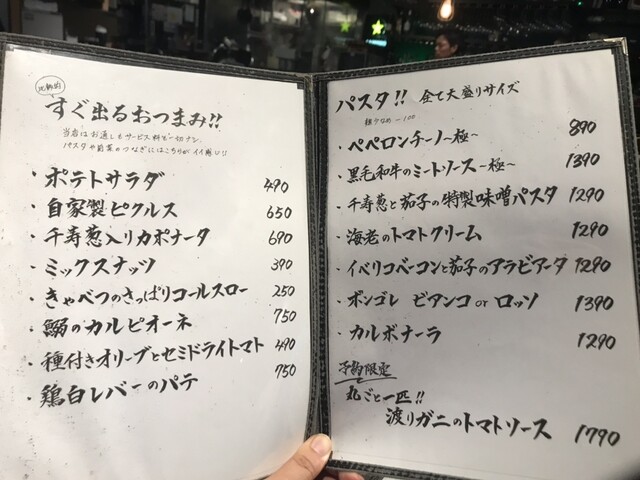 比較的
すぐ出るおつまみ!!
当店はお通しもサービス料も一切ナシ。
パスタや前菜のつなぎにはこちらがイイ感じ!!
・ポテトサラダ 490
・自家製ピクルス 650
・千寿葱入りカポナータ 690
・ミックスナッツ 390
・きゃべつのさっぱりコールスロー 250
・鰯のカルピオーネ 750
・種付きオリーブとセミドライトマト 490
・鶏白レバーのパテ 750
パスタ!! 全て大盛りサイズ
麺少なめ -100
・ペペロンチーノ~極~ 890
・黒毛和牛のミートソース~極~ 1390
・千寿葱と茄子の特製味噌パスタ 1290
・海老のトマトクリーム 1290
・イベリコベーコンと茄子のアラビアータ 1290
・ボンゴレ ビアンコ or ロッソ 1390
・カルボナーラ 1290
予約限定
丸ごと一匹!!
渡りガニのトマトソース 1790